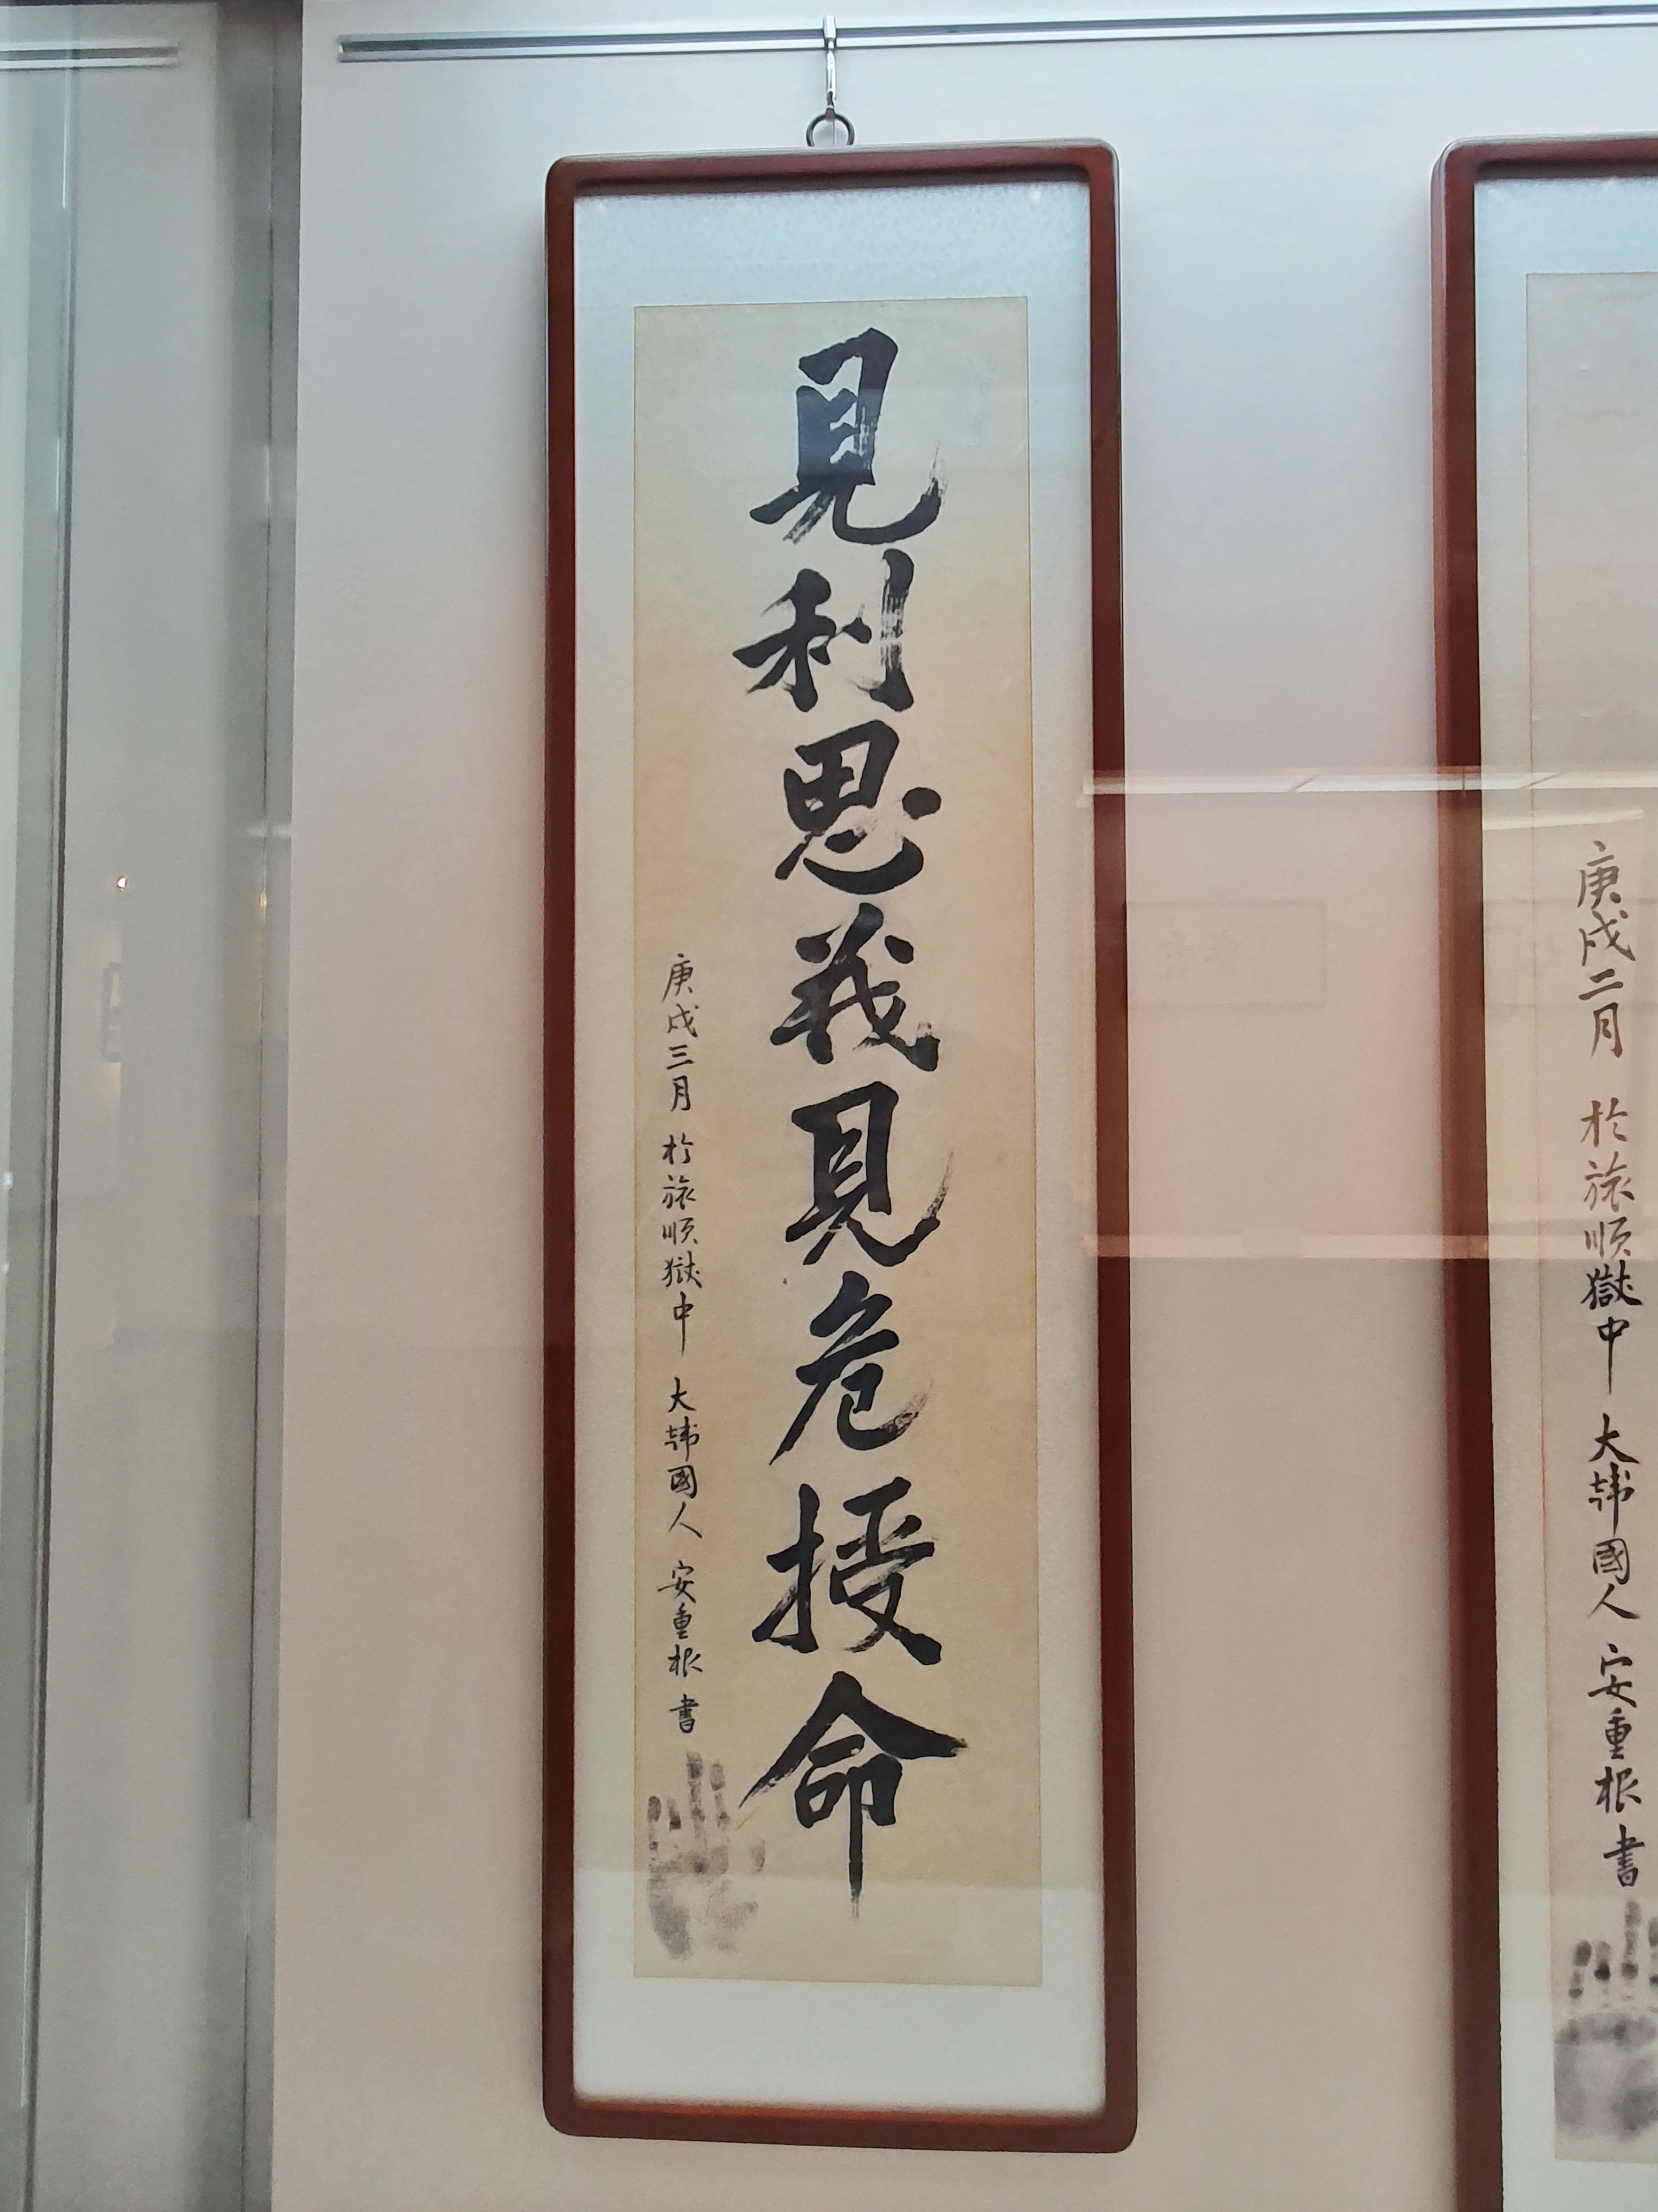 見利思義見危授命
庚戌三月 於旅順獄中 大韓國人 安重根 書
庚戌二月 於旅順獄中 大韓國人 安重根 書